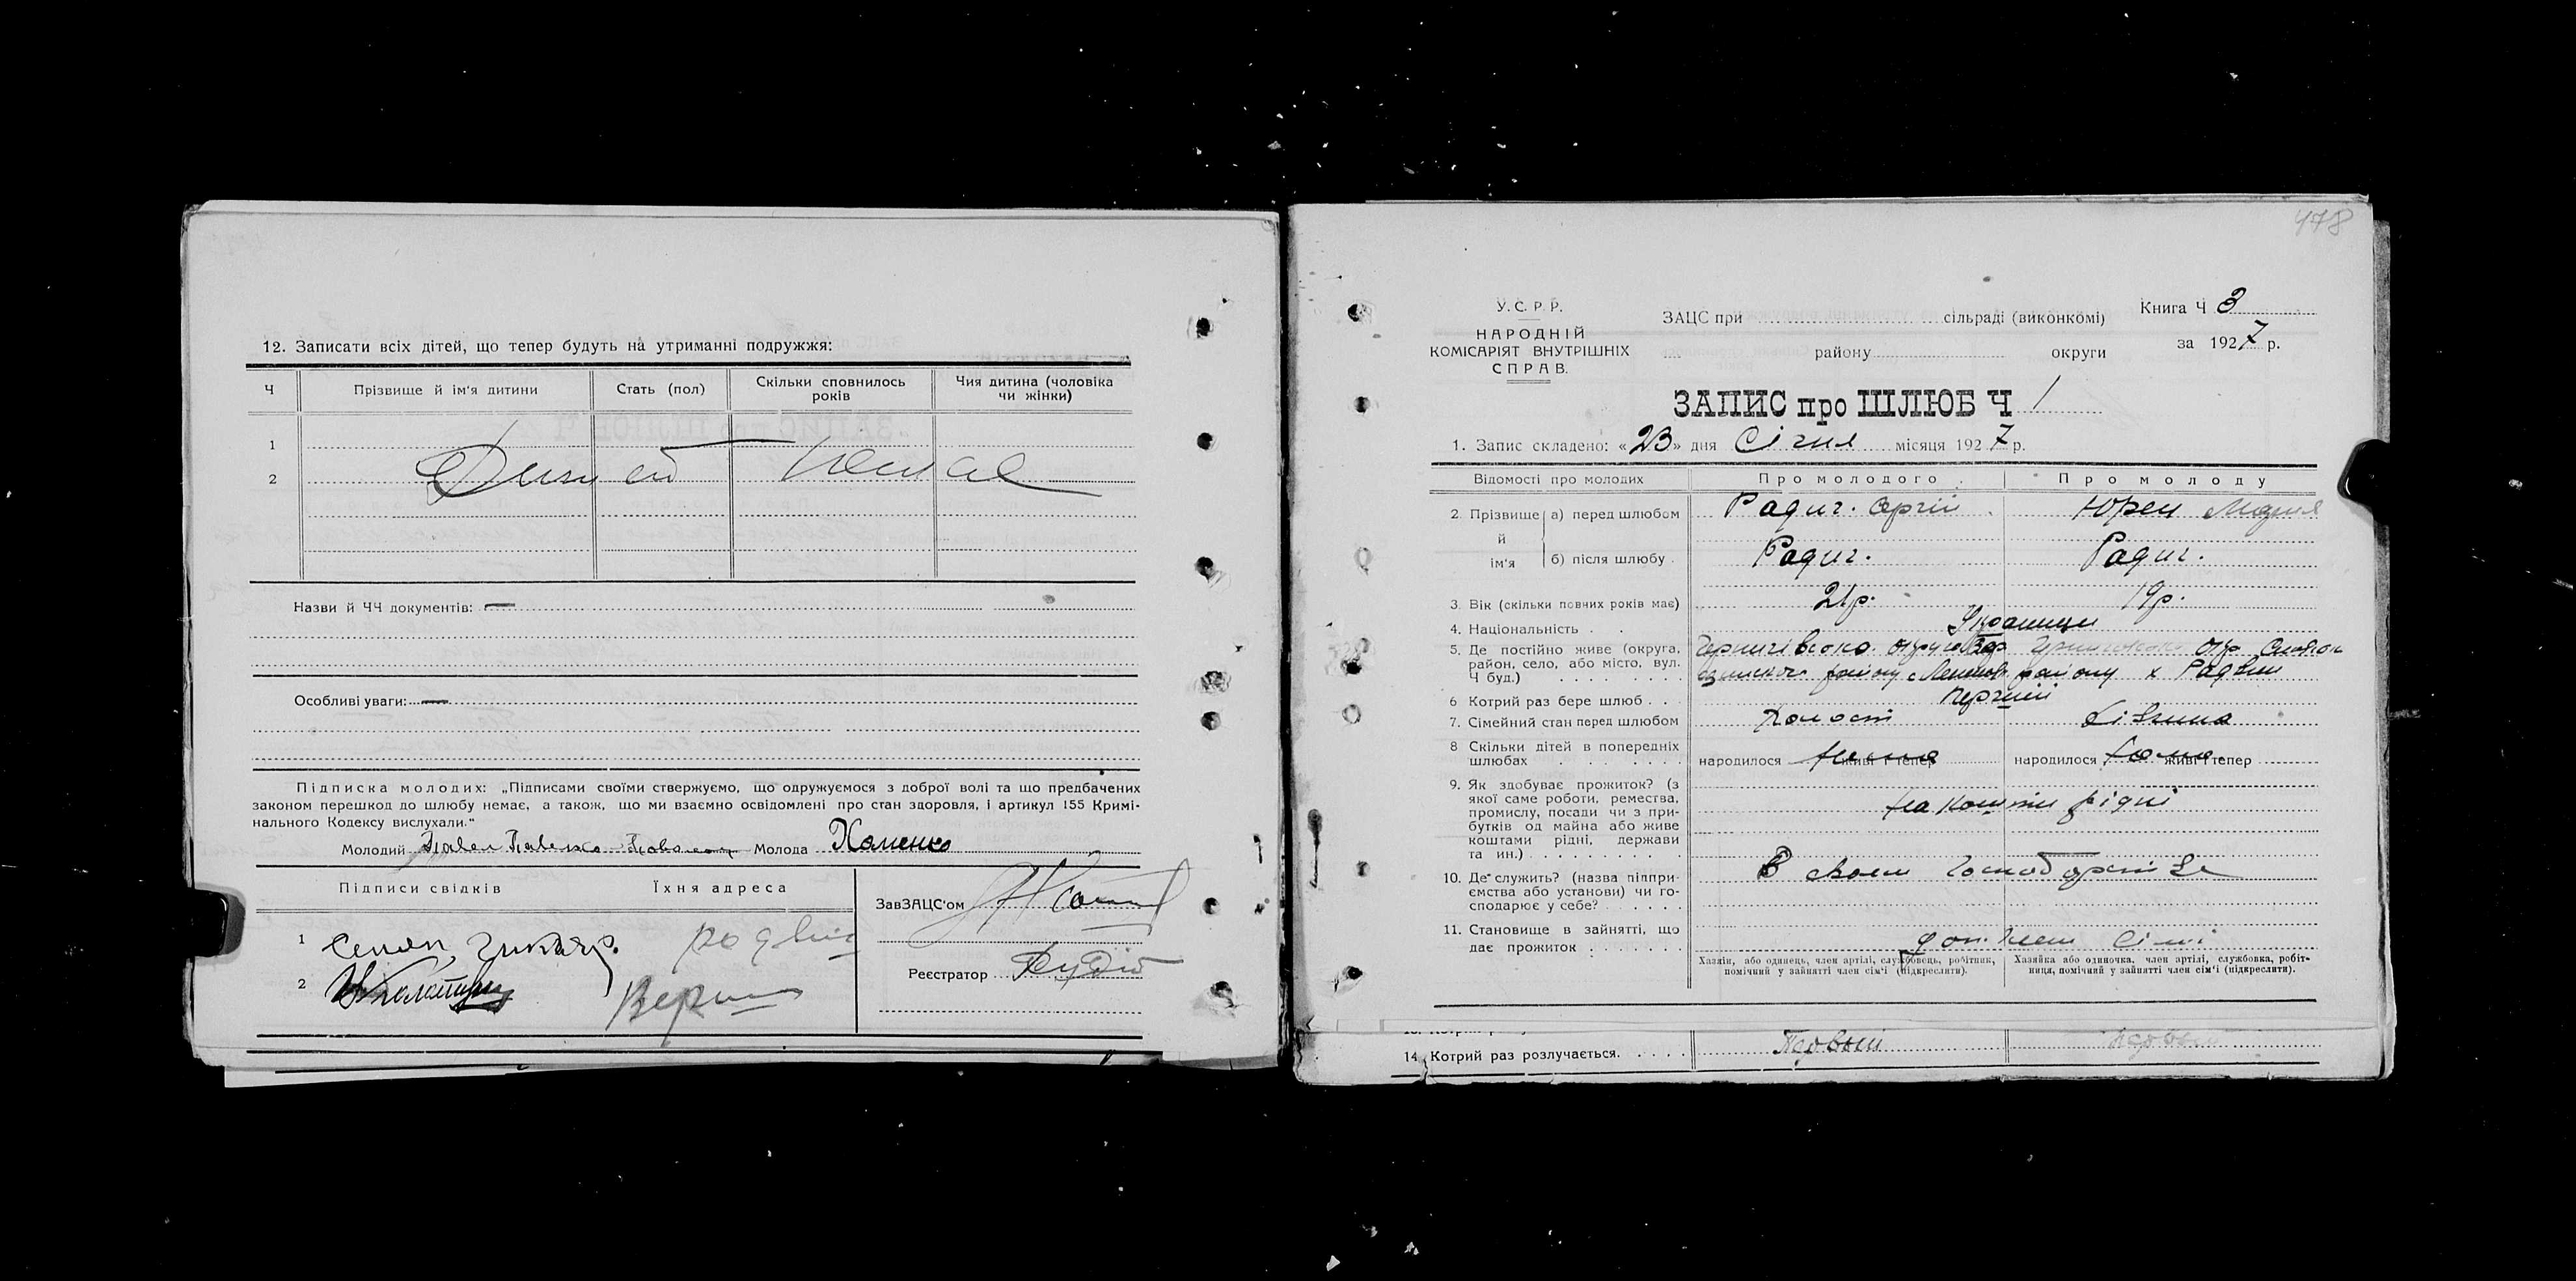 12. Записати всіх дітей, що тепер будуть на утриманні подружжя:
Ч Прізвище й ім'я дитини Стать (пол) Скільки сповнилось років Чия дитина (чоловіка чи жінки)
1
2 Дитей немає
Назви й ЧЧ документів: —
Особливі уваги: —
Підписка молодих: „Підписами своїми стверджуємо, що одружуємося з доброї волі та що предбачених
законом перешкод до шлюбу немає, а також, що ми взаємно освідомлені про стан здоровля, і артикул 155 Кримі-
нального Кодексу вислухали."
Молодий Павел Молода Хоменко
Підписи свідків Їхня адреса
ЗавЗАЦС'ом
1
Реєстратор
2
478
У.С.Р.Р.
НАРОДНІЙ
КОМІСАРІЯТ ВНУТРІШНІХ
СПРАВ.
ЗАЦС при сільраді (виконкомі)
району округи
Книга Ч 3
за 1927 р.
ЗАПИС про ШЛЮБ Ч 1
1. Запис складено: «23» дня Січня місяця 1927 р.
Відомості про молодих Про молодого Про молоду
2. Прізвище й ім'я а) перед шлюбом Радич. Сергій Юрен Марія
б) після шлюбу Радич. Радич.
3. Вік (скільки повних років має) 21р. 19р.
4. Національність Українци
5. Де постійно живе (округа,
район, село, або місто, вул.
Ч буд.) району району х
6 Котрий раз бере шлюб Перший
7. Сімейний стан перед шлюбом Холост Дівчина
8 Скільки дітей в попередніх
шлюбах народилося живі тепер народилося живі тепер
9. Як здобуває прожиток? (з
якої саме роботи, ремества,
промислу, посади чи з при-
бутків од майна або живе
коштами рідні, держави
та ин.) На кошти рідні
10. Де служить? (назва підпри-
ємства або установи) чи го-
сподарює у себе? В своем господарстве
11. Становище в зайнятті, що
дає прожиток доп. член сімї
Хазяїн, або одинець, член артілі, службовець, робітник,
помічний у зайнятті член сім'ї (підкреслити).
Хазяйка або одиночка, член артілі, службовка, робіт-
ниця, помічний у зайнятті член сім'ї (підкреслити).
14. Котрий раз розлучається. Первый Первый